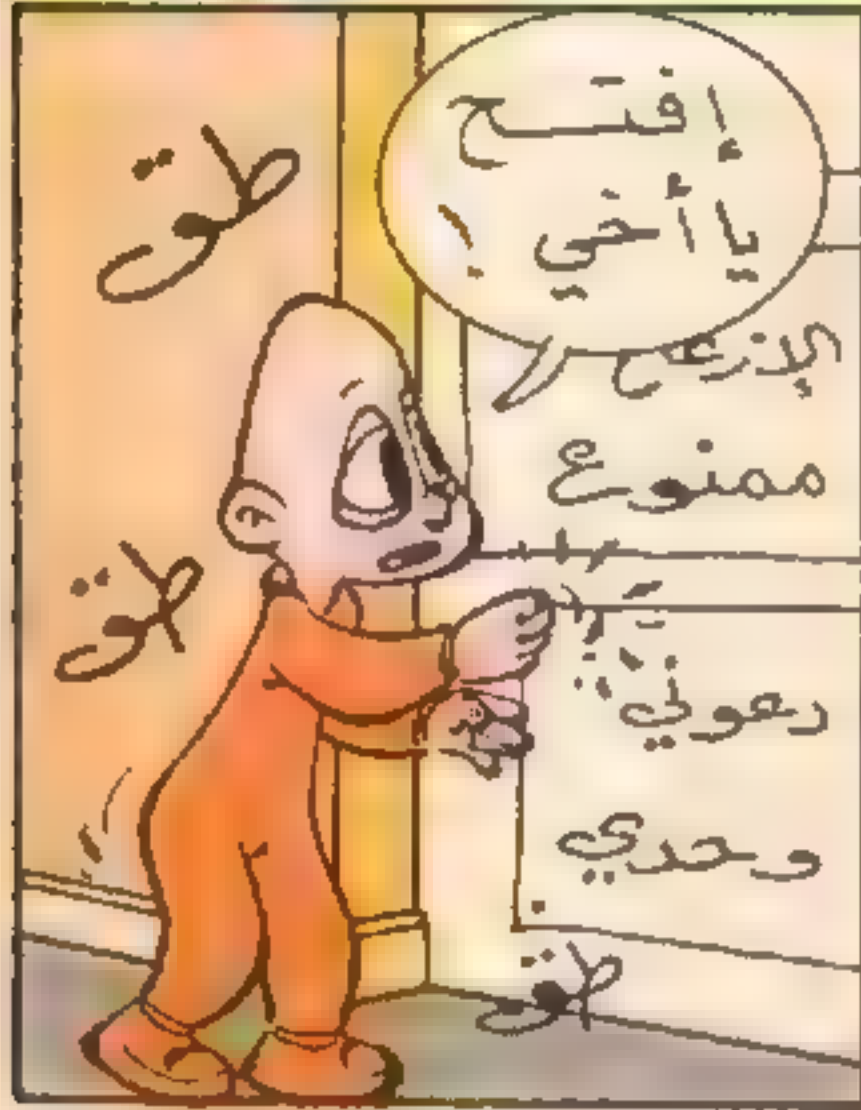 إفتح
يا أخي !
طق
الإزعاج
ممنوع
طق
دعوني
وحدي
طق